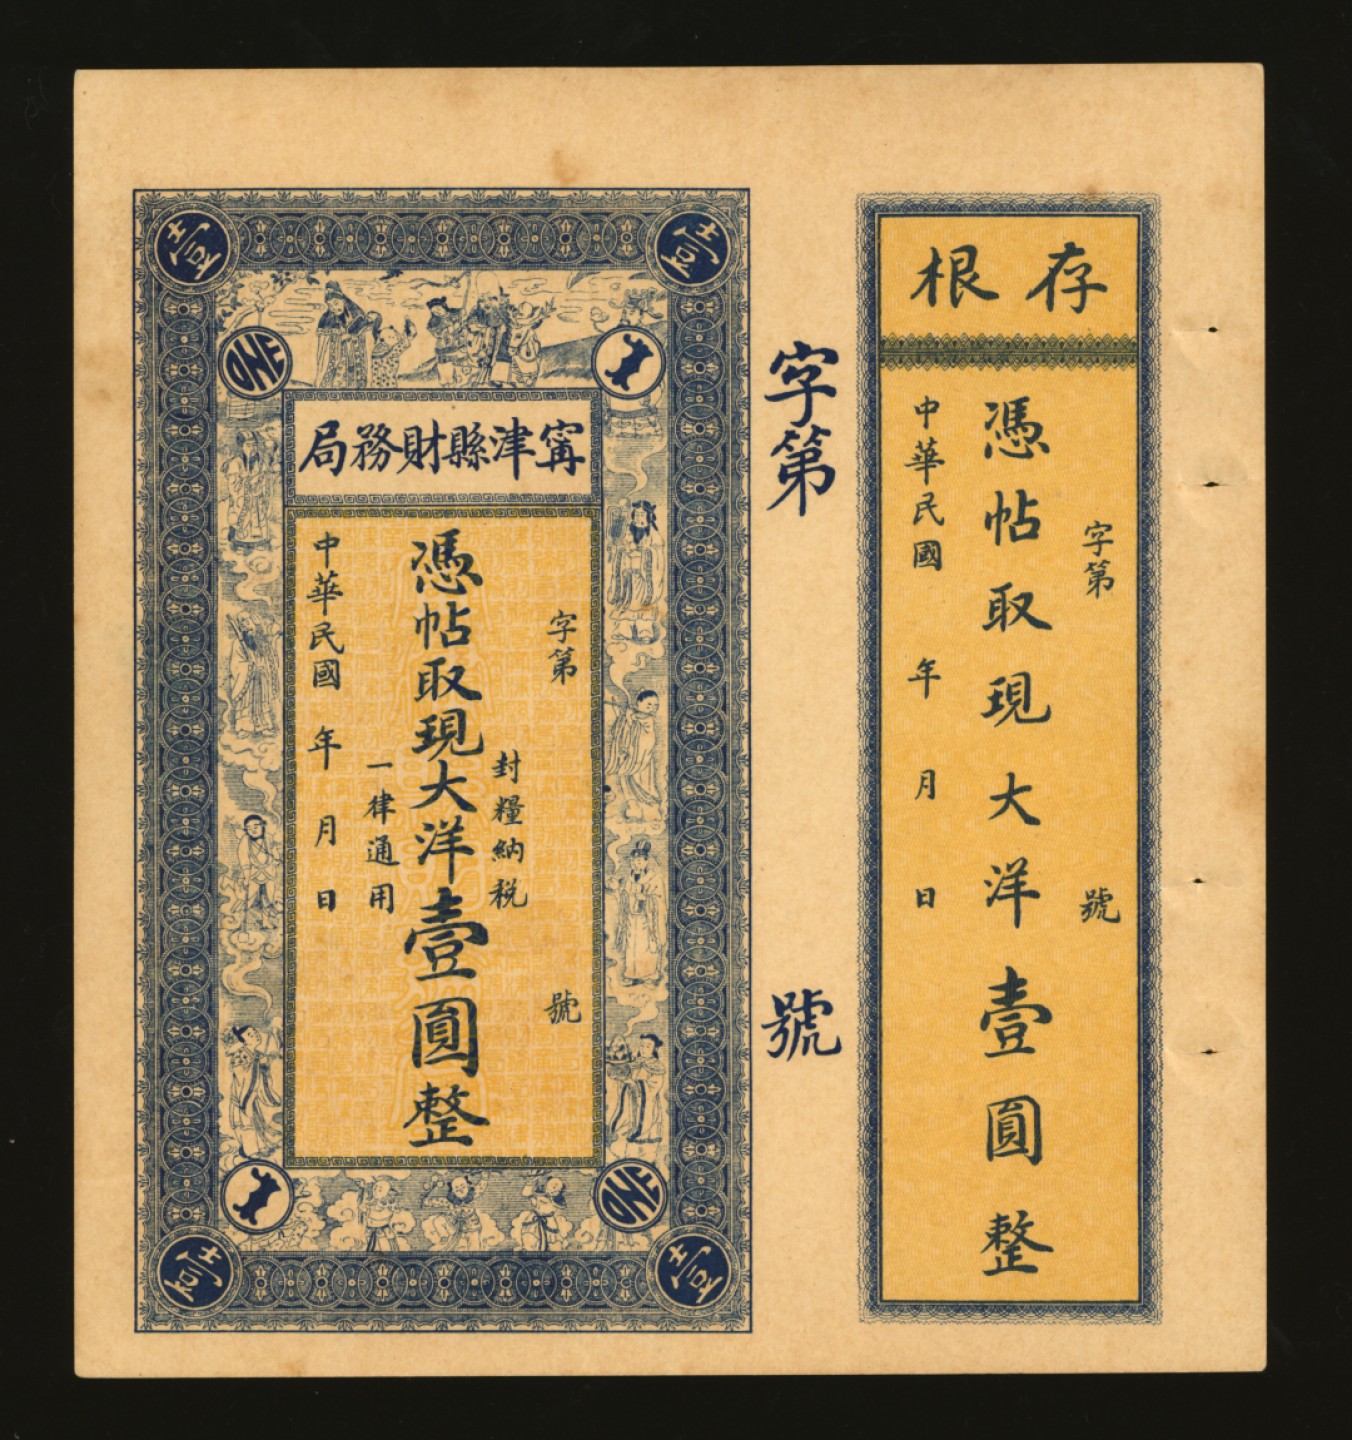 存根
字第 號
憑帖取現大洋壹圓整
中華民國 年 月 日
字第 號
壹
壹
ONE
寧津縣財務局
字第 號
封糧納税
憑帖取現大洋壹圓整
一律通用
中華民國 年 月 日
ONE
壹
壹